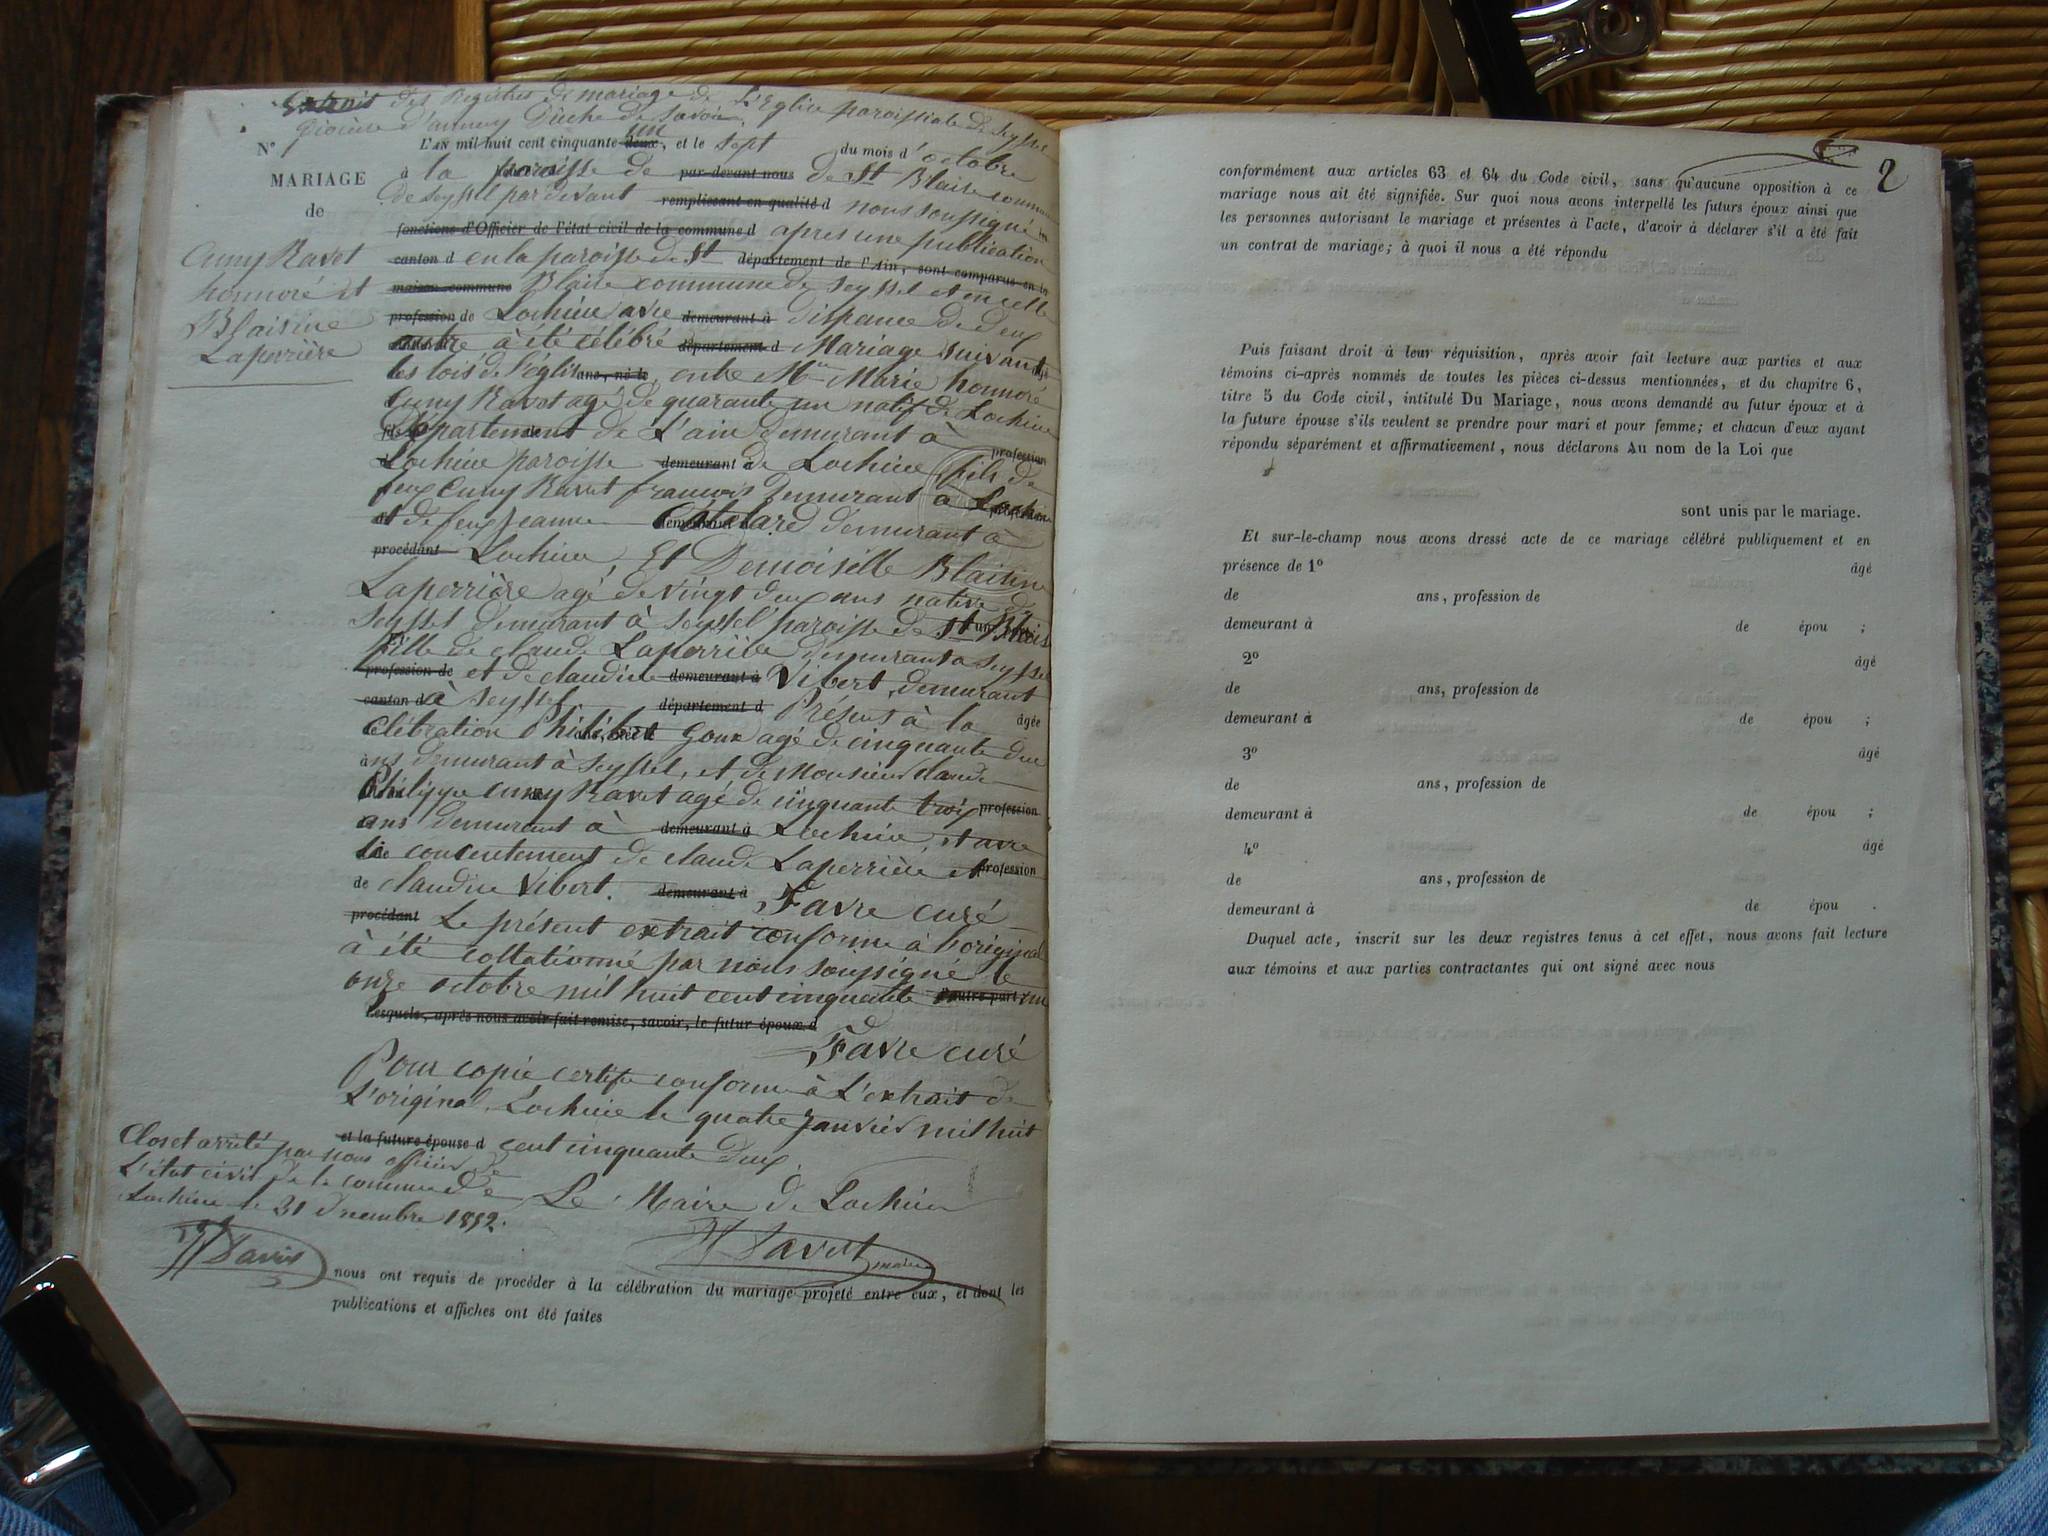 Extrait des Registres de mariage de L'Eglise paroissiale de Seyssel
Diocèse d'annecy Duché de Savoie
N° 1 L'AN mil huit cent cinquante deux un, et le sept du mois d'octobre
MARIAGE
de
Cuny Ravet
honnoré et
Blaisine
Laperrière
à la paroisse de par-devant nous de St Blaise commune
de Seyssel par devant remplissant en qualité d nous soussigné
fonctions d'Officier de l'état civil de la commune d apres une publication
canton d en la paroisse de St département de l'Ain, sont comparus en la
maison commune Blaise commune de Seyssel et en celle
profession de Lochieu avec demeurant à dispance de deux
autre à été célébré département d Mariage suivant
les lois de l'église ans, né le entre Mr Marie honnoré
Cuny Ravet agé de quarante un natif de Lochieu
Département de L'ain demurant à
profession
Lochieu paroisse demeurant à de Lochieu fils de
feux Cuny Ravet francois demurant à Lochieu
et de feux Jeanne demeurant à demurant à
procédant Lochieu, Et Demoiselle Blaisine
Laperrière agé de vingt deux ans native de
Seyssel demurant à Seyssel paroisse de St Blaise
fille de claude Laperrière demurant à Seyssel
profession de et de claudine demeurant à Vibert demurant
canton d à Seyssel département d Présent à la âgée
célébration Philibert Goux agé de cinquante deux
ans demurant à Seyssel, et de Monsieur claude
Philippe Cuny Ravet agé de cinquante trois profession
ans demurant à demeurant à Lochieu, et avec
le concentement de claude Laperrière et profession
de claudine Vibert. demeurant à Favre curé
procédant Le présent extrait conforme à l'original
à été collationné par nous soussigné le
onze octobre mil huit cent cinquante d'autre part un
Lesquels, après nous avoir fait remise, savoir, le futur époux d
Favre curé
Pour copie certifié conforme à L'extrait de
L'original Lochieu le quatre janvier mil huit
et la future épouse d cent cinquante deux
Le Maire de Lochieu
Clos et arrêté par nous officier de
L'état civil de la commune de
Lochieu le 31 Dnembre 1852.
nous ont requis de procéder à la célébration du mariage projeté entre eux, et dont les
publications et affiches ont été faites
2
conformément aux articles 63 et 64 du Code civil, sans qu'aucune opposition à ce
mariage nous ait été signifiée. Sur quoi nous avons interpellé les futurs époux ainsi que
les personnes autorisant le mariage et présentes à l'acte, d'avoir à déclarer s'il a été fait
un contrat de mariage; à quoi il nous a été répondu
Puis faisant droit à leur réquisition, après avoir fait lecture aux parties et aux
témoins ci-après nommés de toutes les pièces ci-dessus mentionnées, et du chapitre 6,
titre 5 du Code civil, intitulé Du Mariage, nous avons demandé au futur époux et à
la future épouse s'ils veulent se prendre pour mari et pour femme; et chacun d'eux ayant
répondu séparément et affirmativement, nous déclarons Au nom de la Loi que
sont unis par le mariage.
Et sur-le-champ nous avons dressé acte de ce mariage célébré publiquement et en
présence de 1° âgé
de ans, profession de
demeurant à de épou ;
2° âgé
de ans, profession de
demeurant à de épou ;
3° âgé
de ans, profession de
demeurant à de épou ;
4° âgé
de ans, profession de
demeurant à de épou .
Duquel acte, inscrit sur les deux registres tenus à cet effet, nous avons fait lecture
aux témoins et aux parties contractantes qui ont signé avec nous